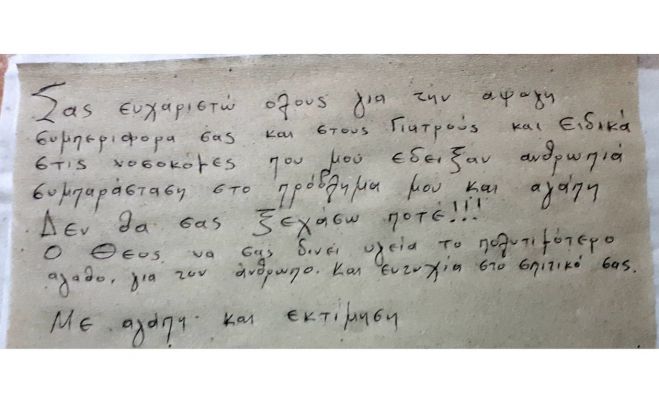 Σας ευχαριστώ ολους για την αψογη
συμπεριφορα σας και στους Γιατρούς και Ειδικά
στις νοσοκόμες που μου εδειξαν ανθρωπιά
συμπαράσταση στο πρόβλημα μου και αγάπη
Δεν θα σας ξεχάσω ποτέ!!!
Ο Θεος να σας δινει υγεία το πολυτιμότερο
αγαθο, για τον άνθρωπο. Και ευτυχία στο σπιτικό σας.
Με αγάπη και εκτίμηση